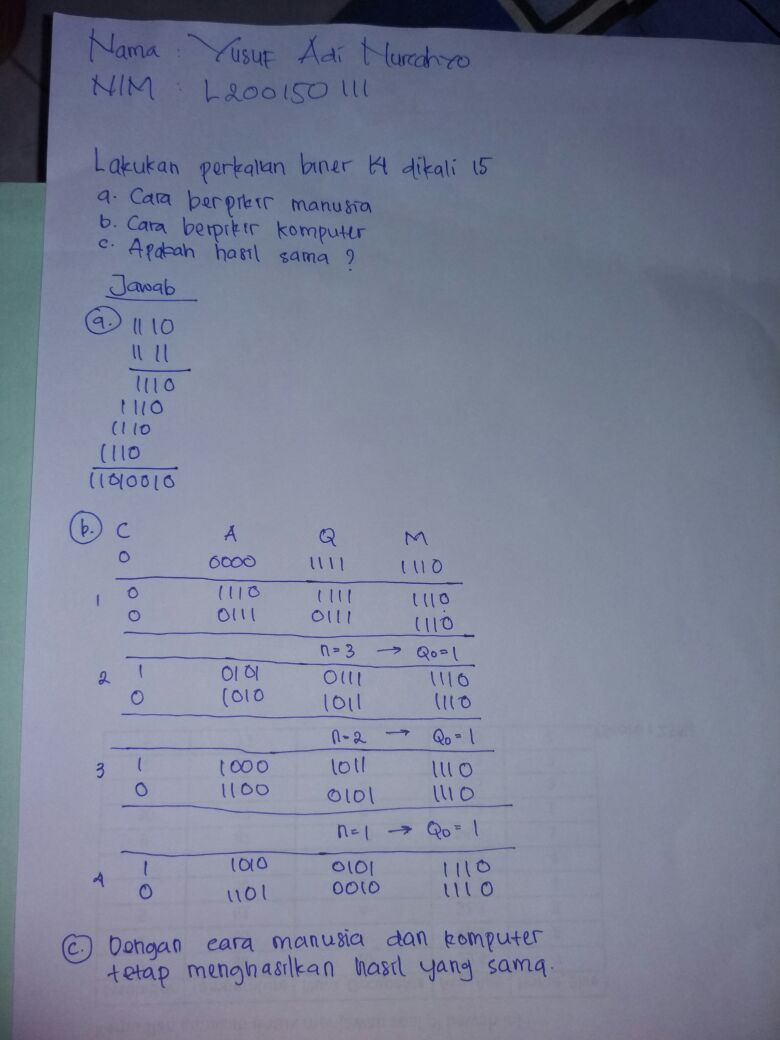 Nama : Yusuf Adi Nurcahyo
NIM : L200150111
Lakukan perkalian biner 14 dikali 15
a. Cara berpikir manusia
b. Cara berpikir komputer
c. Apakah hasil sama ?
Jawab
a. 1110
1111
1110
1110
1110
1110
11010010
b. C A Q M
0 0000 1111 1110
1 0 1110 1111 1110
0 0111 0111 1110
n=3 → Q0=1
2 1 0101 0111 1110
0 1010 1011 1110
n=2 → Q0=1
3 1 1000 1011 1110
0 1100 0101 1110
n=1 → Q0=1
4 1 1010 0101 1110
0 1101 0010 1110
c. Dengan cara manusia dan komputer
tetap menghasilkan hasil yang sama.